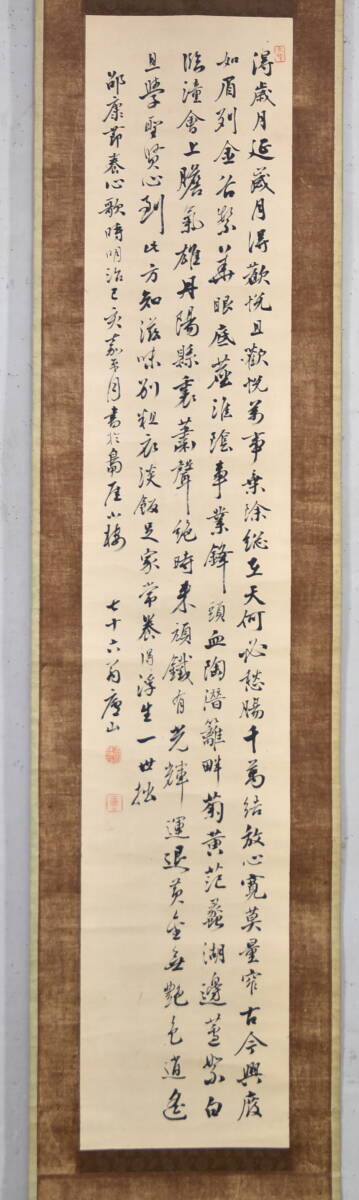 得歳月延歳月得歓悦且歓悦萬事乗除総在天何必愁腸千萬結放心寛莫量窄古今興廃
如眉列金谷繁華眼底塵淮陰事業鋒頭血陶潜籬畔菊黄范蠡湖邊蘆絮白
臨潼會上膽氣雄丹陽縣裏蕭聲絶時来頑鐵有光輝運退黄金無艶色逍遙
且學聖賢心到此方知滋味別粗衣淡飯足家常養得浮生一世拙
邵康節養心歌時明治己亥嘉平月書於
七十六翁廬山